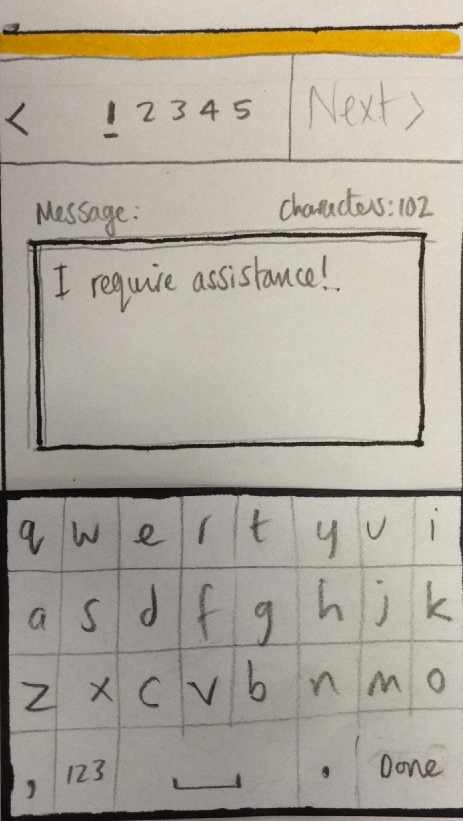 < 1 2 3 4 5 Next >
Message: Characters: 102
I require assistance!..
q w e r t y u i
a s d f g h j k
z x c v b n m o
, 123 . Done